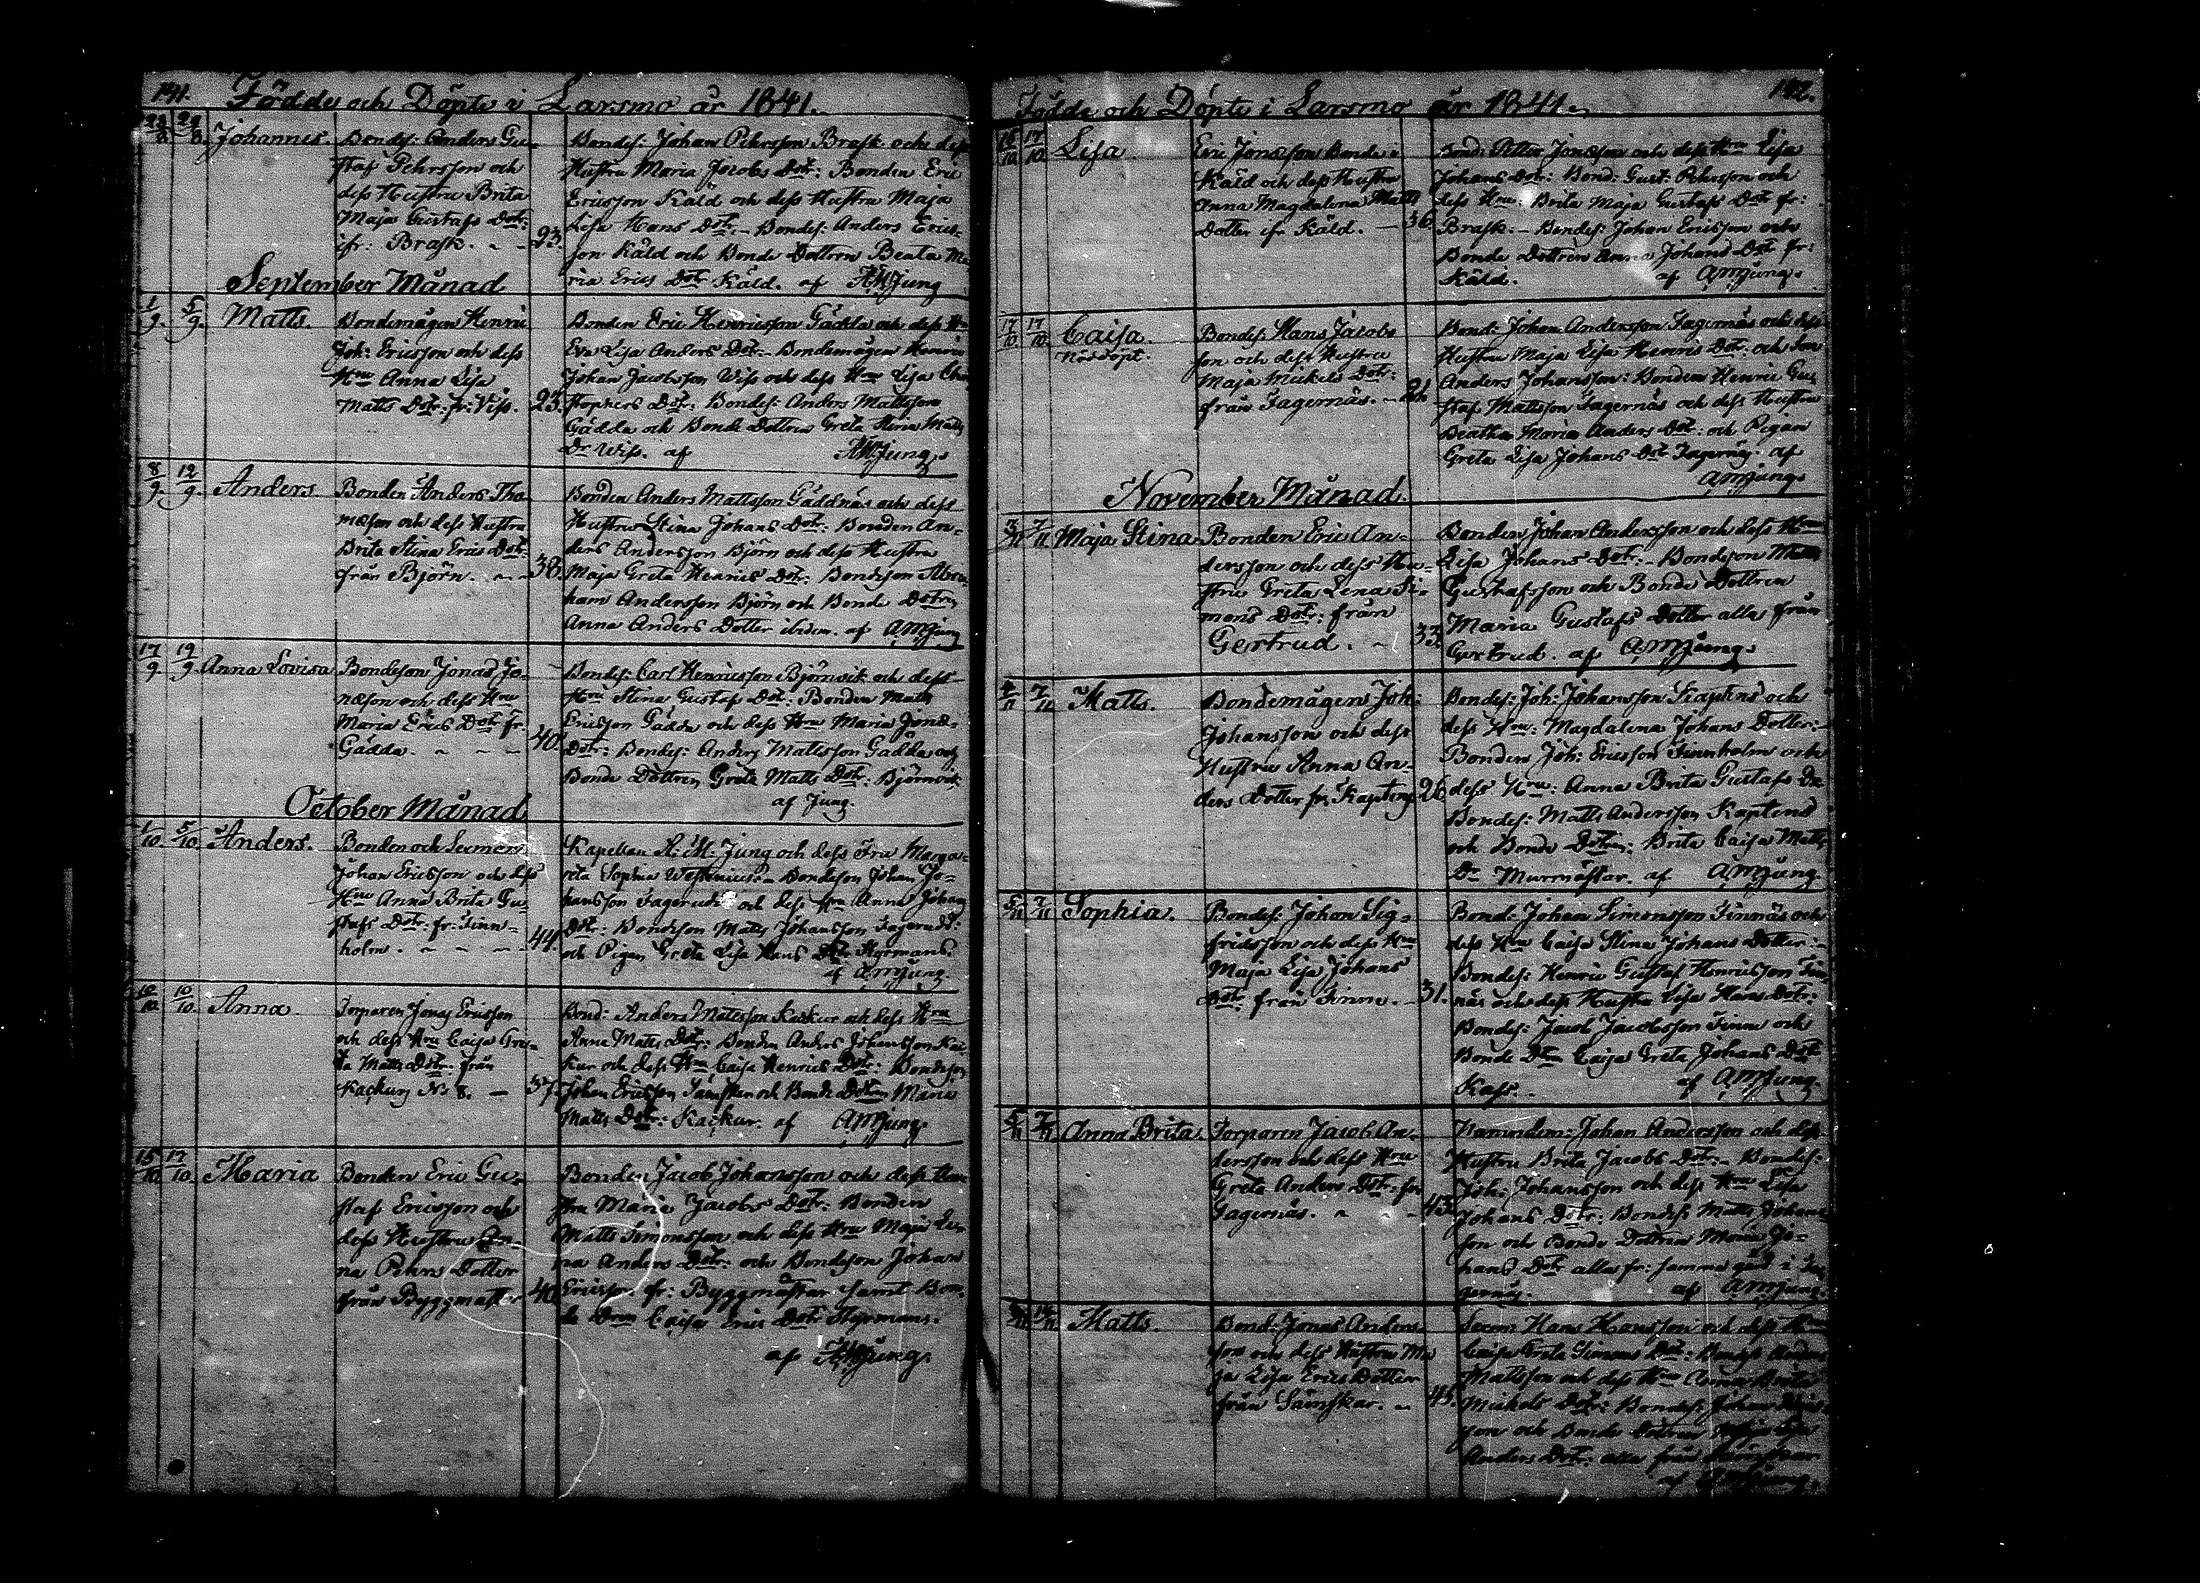 141. Födde och Döpte i Larsmo år 1841.
22/8 29/8 Johannes. Bondes: Anders Gu-
staf Pehrsson och
dess Hustru Brita
Maja Gustafs Dotr:
ifr: Brask. 23.
Bondes: Johan Pehrsson Brask och dess
Hustru Maria Jacobs Dotr: Bonden Eric
Ericsson Käld och dess Hustru Maja
Lisa Hans Dotr. - Bondes: Anders Erics-
son Käld och Bonde Dottren Beata Ma-
ria Erics Dotr Käld. af AMJung
September Månad
1/9. 5/9. Matts. Bondemågen Henric
Joh: Ericsson och dess
Hru Anna Lisa
Matts Dotr: fr: Viss. 23.
Bonden Eric Henricsson Gädda och dess Hru
Eva Lisa Anders Dotr. - Bondemågen Henric
Johan Jacobsson Wiss och dess Hru Lisa Chri-
stophers Dotr: Bondes: Anders Mattsson
Gädda och Bonde Dottren Greta Stina Matts
Dr Wiss. af AMJung.
8/9. 12/9. Anders. Bonden Anders Tho-
mæson och dess Hustru
Brita Stina Erics Dotr:
från Björn. 38.
Bonden Anders Mattsson Gäddnäs och dess
Hustru Stina Johans Dotr: Bonden An-
ders Andersson Björn och dess Hustru
Maja Greta Henrics Dotr: Bondeson Abra-
ham Andersson Björn och Bonde Dotren
Anna Anders Dotter ibidem. af AMJung
17/9. 19/9. Anna Lovisa Bondeson Jonas Jo-
næson och dess Hru
Maria Erics Dotr fr.
Gädda. 40.
Bondes: Carl Henricsson Björnvik och dess
Hru Stina Gustafs Dotr: Bonden Matts
Ericsson Gädda och dess Hru Maria Jonæ-
Dotr: Bondes: Anders Mattsson Gädda och
Bonde Dottren Greta Matts Dotr: Björnvik
af Jung.
October Månad
1/10. 5/10. Anders. Bonden och Sexmen
Johan Ericsson och dess
Hru Anna Brita Gu-
stafs Dotr: fr: Finn-
holm. 44.
Kapellan A: M: Jung och dess Fru Marga-
reta Sophia Westenius: - Bondeson Johan Jo-
hansson Fagerudd och dess Hru Anna Johans
Dotr: Bondeson Matts Johansson Fagerudd:
och Pigan Greta Lisa Hans Dotr Styrmans.
af AMJung.
10/10. 10/10. Anna. Torparen Jonas Ericsson
och dess Hru Caisa Gre-
ta Matts Dotr: från
Kackurs No 8. 37.
Bond: Anders Mattsson Kackur och dess Hru
Anna Matts Dotr: Bonden Anders Johansson Kac-
kur och dess Hru Caisa Henrics Dotr: Bondeson
Johan Ericsson Sämskar och Bonde Dotren Maria
Matts Dotr: Kackur. af AMJung.
15/10 17/10. Maria Bonden Eric Gu-
staf Ericsson och
dess Hustru An-
na Pehrs Dotter
från Byggmästar 40.
Bonden Jacob Johansson och dess Hus-
tru Maria Jacobs Dotr: Bonden
Matts Simonsson och dess Hru Maja Le-
na Anders Dotr: och Bondeson Johan
Ericsson fr: Byggmästar samt Bon-
de Dren Caisa Erics Dotr Styrmans.
af AMJung.
142.
Födde och Döpte i Larsmo år 1841.
15/10 17/10 Lisa. Eric Jonæson Bonde i
Käld och dess Hustru
Anna Magdalena Matts
Dotter ifr Käld. 36.
Bond: Petter Jonæson och dess Hru Lisa
Johans Dotr: Bond: Gust: Pehrsson och
dess Hru Brita Maja Gustafs Dotr fr:
Brask. - Bondes: Johan Ericsson och
Bonde Dottren Anna Johans Dotr fr:
Käld. af AMJung.
17/10 17/10 Caisa. Bondes: Hans Jacobs
Nöddöpt. son och dess Hustru
Maja Mickels Dotr:
från Fagernäs. 21.
Bond: Johan Andersson Fagernäs och dess
Hustru Maja Lisa Henrics Dotr: och Son
Anders Johansson: Bonden Henric Gu-
staf Mattsson Fagernäs och dess Hustru
Beatha Maria Anders Dotr: och Pigan
Greta Lisa Johans Dotr Fagernäs. af
AMJung.
November Månad.
3/11 7/11 Maja Stina Bonden Eric An-
dersson och dess Hu-
stru Greta Lena Si-
mons Dotr: från
Gertrud. 33.
Bonden Johan Andersson och dess Hru
Lisa Johans Dotr. - Bondeson Matts
Gustafsson och Bonde Dottren
Maria Gustafs Dotter alla från
Gertrud. af AMJung.
4/11 7/11 Matts. Bondemågen Joh:
Johansson och dess
Hustru Anna An-
ders Dotter fr: Kaptens 26
Bondes: Joh: Johansson Kaptens och
dess Hru: Magdalena Johans Dotter:
Bonden Joh: Ericsson Finnholm och
dess Hru: Anna Brita Gustafs Dr
Bondes: Matts Andersson Kaptens
och Bonde Dotren: Brita Caisa Matts
Dr Murmästar. af AMJung.
5/11 7/11 Sophia. Bondes: Johan Sig-
fridsson och dess Hru
Maja Lisa Johans
Dotr: från Finne. 31.
Bond: Johan Simonsson Finnäs och
dess Hru Caisa Stina Johans Dotter: -
Bondes: Henric Gustaf Henricsson Fin-
näs och dess Hustru Lisa Hans Dotr:
Bondes: Jacob Jacobsson Finne och
Bonde Dren Caisa Greta Johans Dotr
Kass. af AMJung.
5/11 7/11 Anna Brita. Torparen Jacob An-
dersson och dess Hru
Greta Anders Dotr: fr
Fagernäs. 43.
Johan Andersson och dess
Hustru Brita Jacobs Dotr: - Bondes:
Joh: Johansson och dess Hru Lisa
Johans Dotr: Bondes: Matts Johans-
son och Bonde Dottren Maria Jo-
hans Dotr alla fr: samma gård i Fa-
gernäs. af AMJung.
14/11 Matts. Bond: Jonas Anders-
son och dess Hustru Ma-
ja Lisa Erics Dotter
från Sämskar. 45.
Sexm Hans Hansson och dess Hru
Caisa Greta Simons Dotr: Bondes Anders
Mattsson och dess Hru Anna Brita
Mickels Dotr: Bondes: Johan
son och Bonde Dottren Maja Lisa
Anders Dotr: alla från Sämskar.
af AMJung.